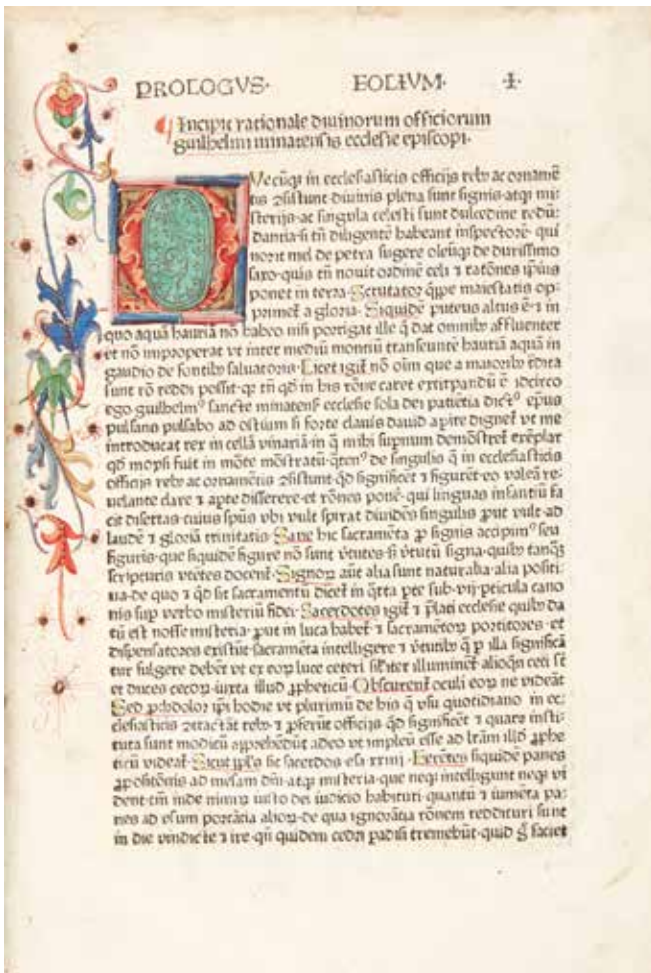 PROLOGVS· FOLIVM· ·I·
¶ Incipit rationale diuinorum officiorum
guilhelmi minatensis ecclesie episcopi·
QVecūq̄ in ecclesiasticis officijs rebꝰ ac ornamē
tis ꝯsistunt diuinis plena sunt signis atq̄ mi
sterijs ac singula celesti sunt dulcedine redū
dantia si tñ diligentē habeant inspectorē qui
norit mel de petra sugere oleūq̄ de durissimo
saxo quis tñ nouit ordinē celi ⁊ ratōnes ipsius
ponet in terra· Scrutator q̄ppe maiestatis op-
primet̄ a gloria· Siquidē puteus altus ē ⁊ in
quo aquā hauriā nō habeo nisi porrigat ille q̄ dat omnibꝰ affluenter
et nō improperat vt inter mediū montiū transeuntē hauriā aquā in
gaudio de fontibꝰ saluatoris· Licet igit̄ nō oīm que a maioribꝰ trādita
sunt rō reddi possit qr tñ qd̄ in his rōne caret extirpandū ē idcirco
ego guilhelmꝰ sancte minateñ ecclesie sola dei patiētia dictꝰ ep̄us
pulsans pulsabo ad ostium si forte clauis dauid aperire dignet̄ vt me
introducat rex in cellā vinariā in q̄ mihi supnum demōstret̄ exēplar
qd̄ moysi fuit in mōte mōstratū q̄tenꝰ de singulis q̄ in ecclesiasticis
officijs rebꝰ ac ornamētis ꝯsistunt qd̄ significēt ⁊ figurēt eo valeā re-
uelante clare ⁊ apte disserere et rōnes ponē qui linguas infantiū fa
cit disertas cuius sp̄us vbi vult spirat diuidēs singulis ꝓut vult ad
laudē ⁊ gloriā trinitatis· Sane hic sacramēta ꝓ signis accipimꝰ seu
figuris que siquidē figure nō sunt v̄tutes s̄ v̄tutū signa quibꝰ tanq̄
scripturis vtētes docent̄· Signoꝝ aūt alia sunt naturalia alia positi
ua de quo ⁊ qd̄ sit sacramentū dicet̄ in q̄rta pte sub vij pticula cano
nis sup verbo misteriū fidei· Sacerdotes igit̄ ⁊ p̄lati ecclesie quibꝰ da
tū est nosse misteria ꝓut in luca habet̄ ⁊ sacramētoꝝ portitores et
dispensatores existūt sacramēta intelligere ⁊ v̄tutibꝰ q̄ p illa significā
tur fulgere debēt vt ex eoꝝ luce ceteri sil̄iter illuminent̄ alioq̄n ceci st̄
et duces cecoꝝ iuxta illud ꝓpheticū Obscurent̄ oculi eoꝝ ne videāt
Sed ꝓhdolor ip̄i hodie vt plurimū de his q̄ vsu quotidiano in ec-
clesiasticis ꝯtractāt rebꝰ ⁊ ꝓferūt officijs qd̄ significēt ⁊ quare insti-
tuta sunt modicū apprehēdūt adeo vt impletū esse ad lr̄am illd̄ ꝓphe
ticū videat̄· Sicut ppl̄s sic sacerdos esa xxiiij· Ferētes siquidē panes
ꝓpositōnis ad mēsam dn̄i atq̄ misteria que neq̄ intelligunt neq̄ vi
dent tm̄ inde nimirū iusto dei iudicio habituri quantū ⁊ iumēta pa-
nes ad esum portātia alioꝝ de qua ignorātia rōnem reddituri sunt
in die vindicte ⁊ ire q̄n quidem cedri padisi tremebūt quid ḡ faciet